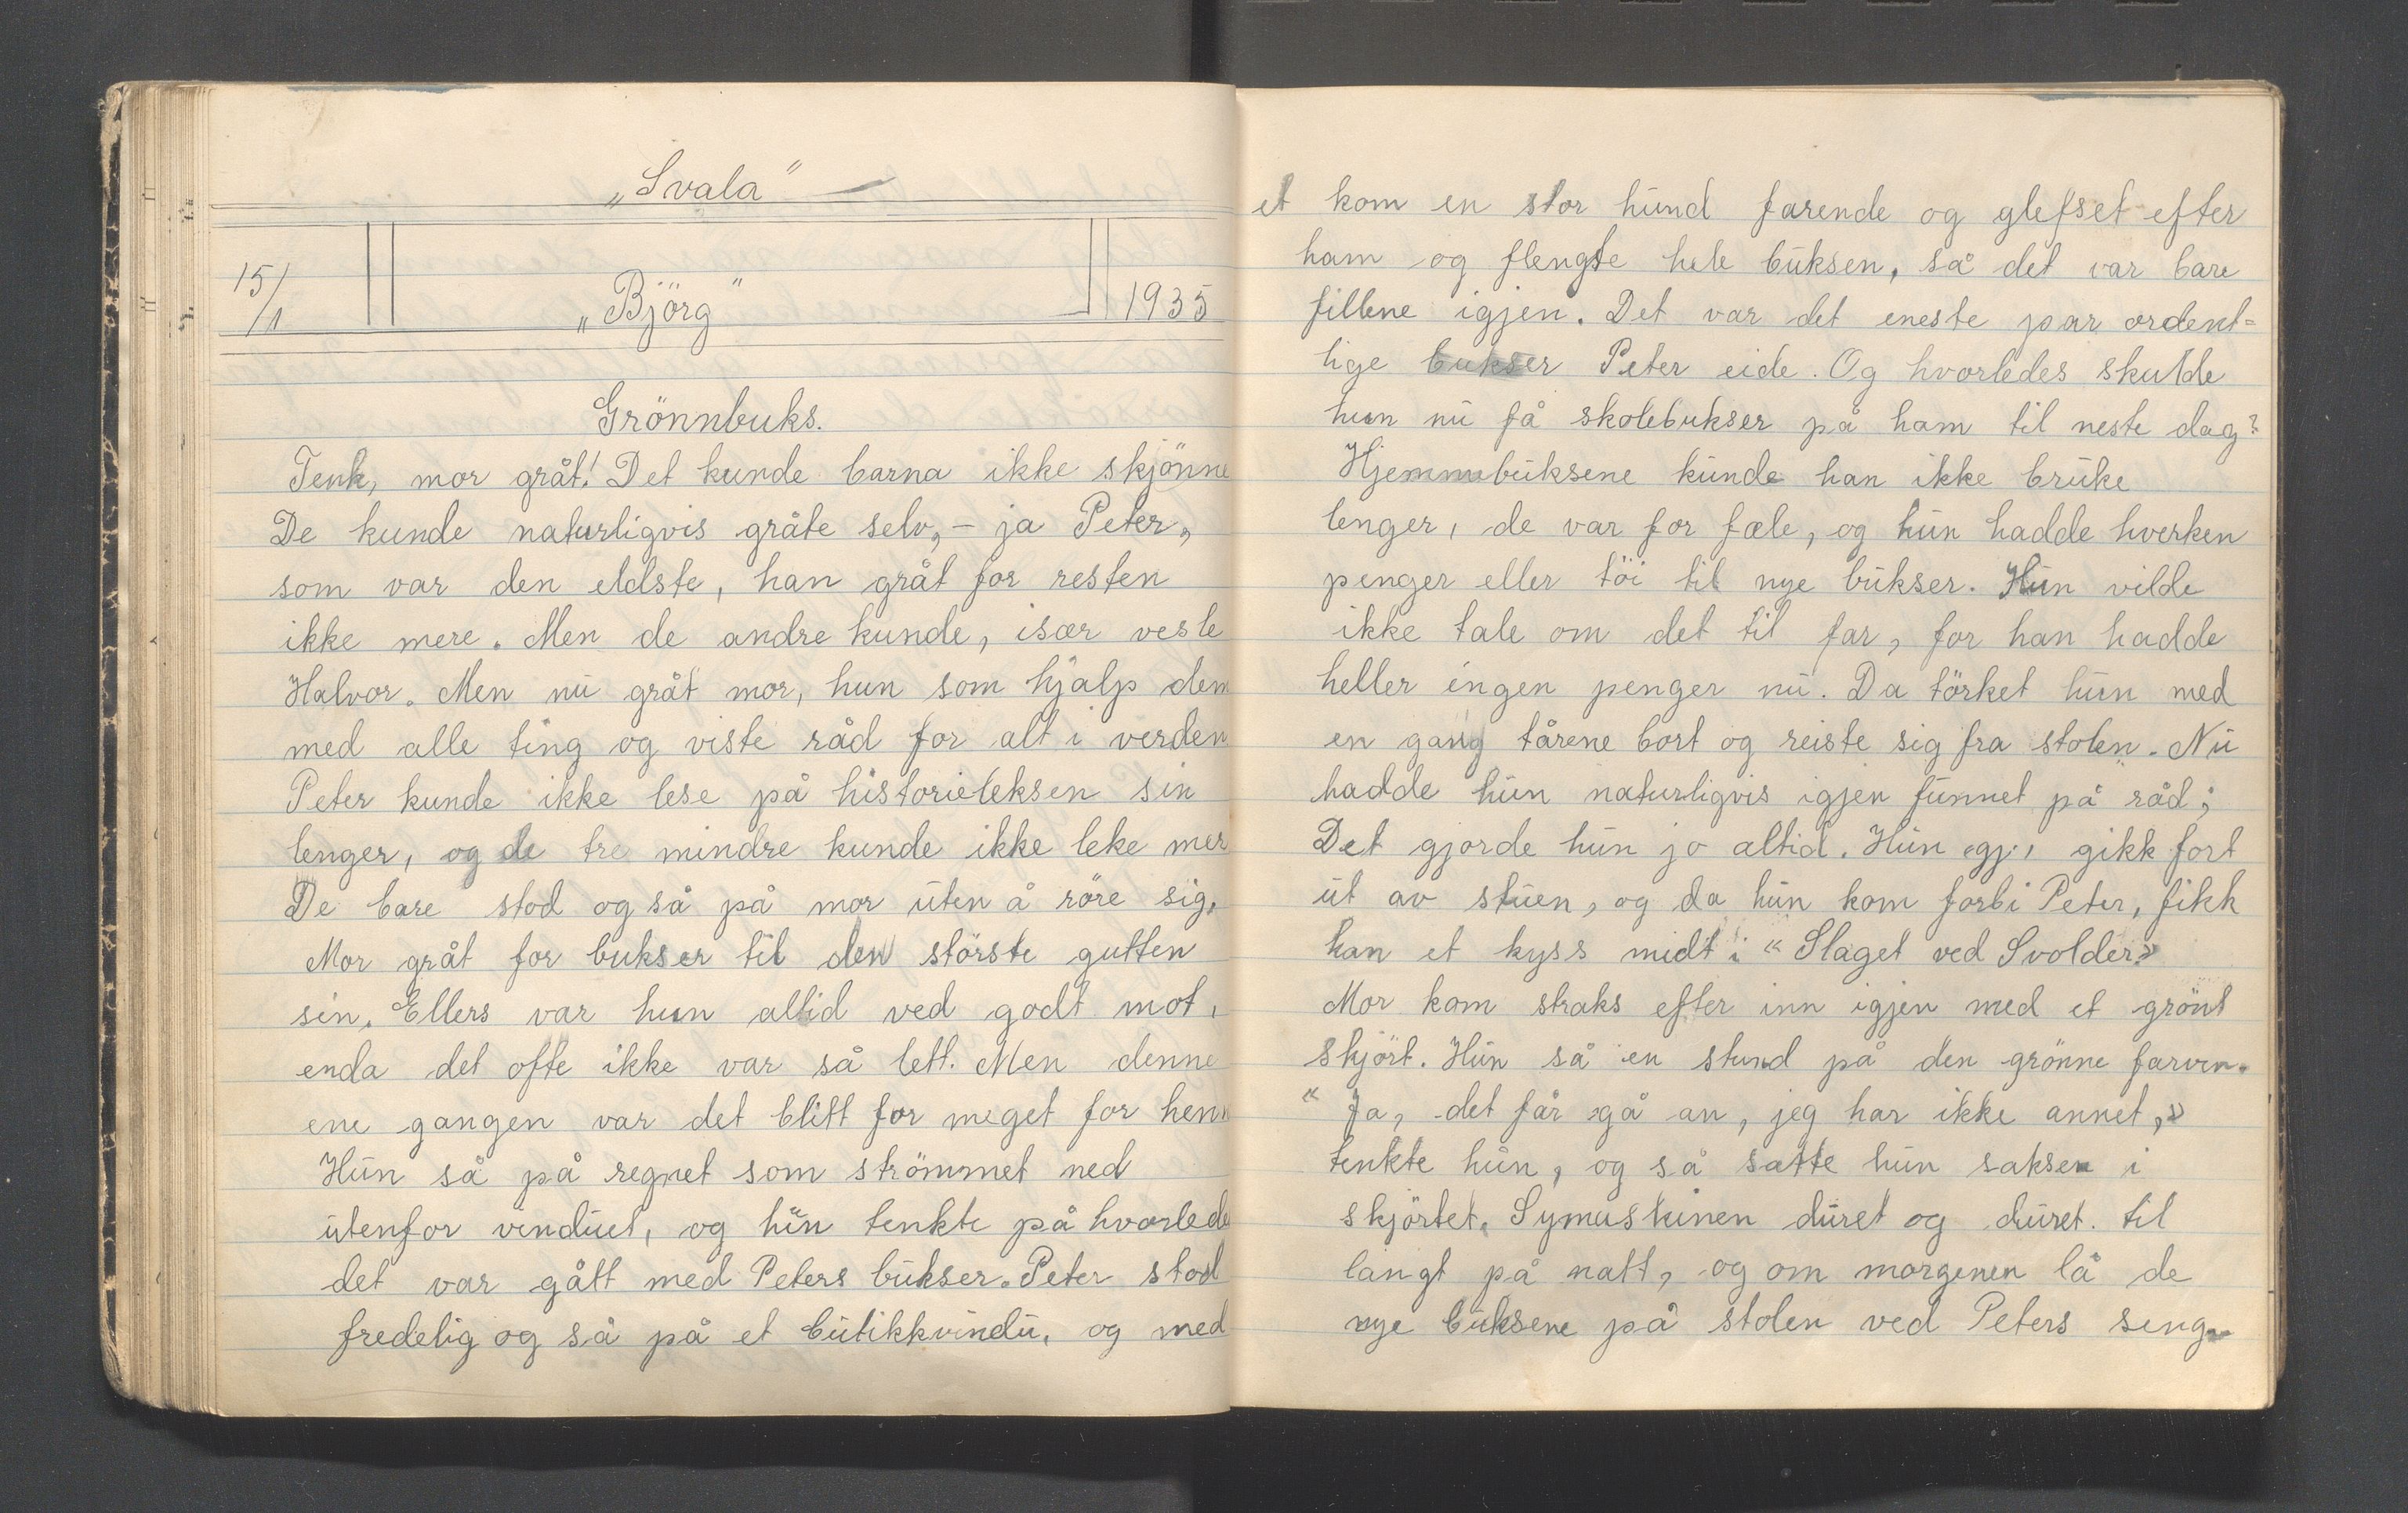 „Svala"
15/1 „Björg" 1935
Grönnbuks.
Tenk, mor gråt! Det kunde barna ikke skjönne
De kunde naturligvis gråte selv, - ja Peter,
som var den eldste, han gråt for resten
ikke mere. Men de andre kunde, især vesle
Halvor. Men nu gråt mor, hun som hjalp dem
med alle ting og viste råd for alt i verden
Peter kunde ikke lese på historieleksen sin
lenger, og de tre mindre kunde ikke leke mer
De bare stod og så på mor uten å röre sig.
Mor gråt for bukser til den störste gutten
sin. Ellers var hun alltid ved godt mot,
enda det ofte ikke var så lett. Men denne
ene gangen var det blitt for meget for henn
Hun så på regnet som strömmet ned
utenfor vinduet, og hun tenkte på hvorlede
det var gått med Peters bukser. Peter stod
fredelig og så på et butikkvindu, og med
et kom en stor hund farende og glefset efter
ham og flengte hele buksen, så det var bare
fillene igjen. Det var det eneste par ordent=
lige bukser Peter eide. Og hvorledes skulde
hun nu få skolebukser på ham til neste dag?
Hjemmebuksene kunde han ikke bruke
lenger, de var for fæle, og hun hadde hverken
penger eller töi til nye bukser. Hun vilde
ikke tale om det til far, for han hadde
heller ingen penger nu. Da törket hun med
en gang tårene bort og reiste sig fra stolen. Nu
hadde hun naturligvis igjen funnet på råd;
Det gjorde hun jo altid. Hun gj, gikk fort
ut av stuen, og da hun kom forbi Peter, fikk
han et kyss midt i « Slaget ved Svolder.»
Mor kom straks efter inn igjen med et grönt
skjört. Hun så en stund på den grönne farven.
« Ja, det får gå an, jeg har ikke annet,»
tenkte hun, og så satte hun saksen i
skjörtet. Symaskinen duret og duret. til
langt på natt, og om morgenen lå de
nye buksene på stolen ved Peters seng.